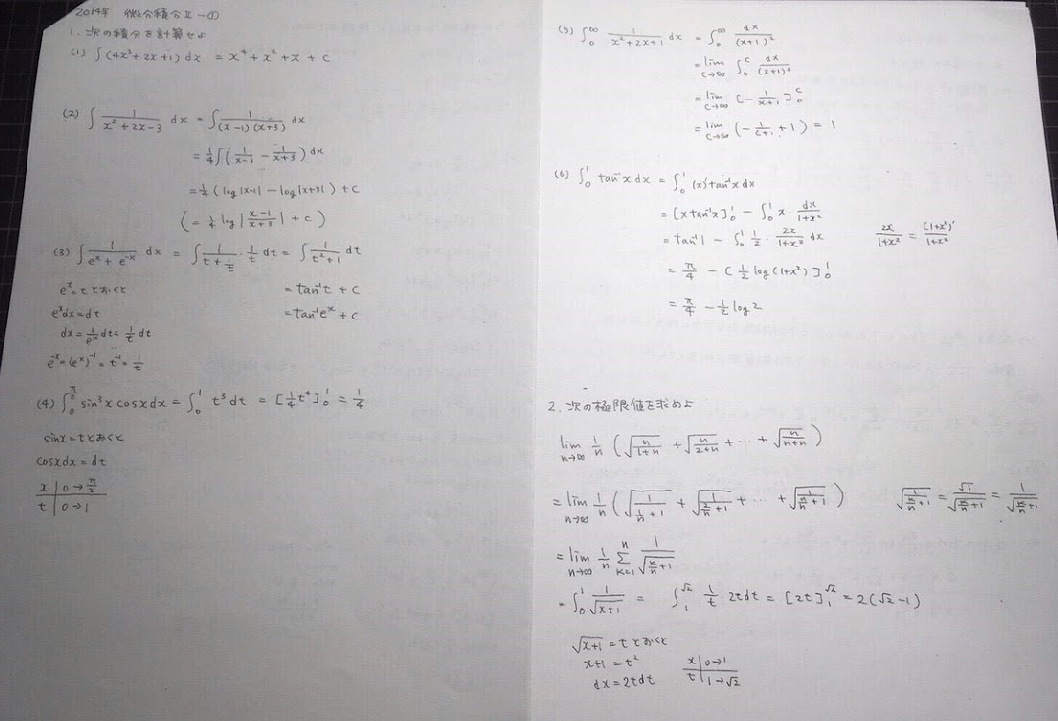 2014年 微分積分Ⅱ-の
1. 次の積分を計算せよ
(1) ∫(4x³+2x+1)dx = x⁴+x²+x+c
(2) ∫ 1/(x²+2x-3) dx = ∫ 1/((x-1)(x+3)) dx
= 1/4 ∫(1/(x-1) - 1/(x+3)) dx
= 1/4 (log|x-1| - log|x+3|) + c
(= 1/4 log|(x-1)/(x+3)| + c)
(3) ∫ 1/(eˣ+e⁻ˣ) dx = ∫ 1/(t+1/t) · 1/t dt = ∫ 1/(t²+1) dt
eˣ=tとおくと = tan⁻¹t + c
eˣdx=dt = tan⁻¹eˣ + c
dx = 1/eˣ dt = 1/t dt
e⁻ˣ=(eˣ)⁻¹ = t⁻¹ = 1/t
(4) ∫₀^(π/2) sin³x cosx dx = ∫₀¹ t³dt = [1/4 t⁴]₀¹ = 1/4
sinx=tとおくと
cosxdx=dt
x | 0→π/2
t | 0→1
(5) ∫₀^∞ 1/(x²+2x+1) dx = ∫₀^∞ dx/(x+1)²
= lim c→∞ ∫₀^c dx/(x+1)²
= lim c→∞ [-1/(x+1)]₀^c
= lim c→∞ (-1/(c+1) + 1) = 1
(6) ∫₀¹ tan⁻¹x dx = ∫₀¹ (x)'tan⁻¹x dx
= [x tan⁻¹x]₀¹ - ∫₀¹ x · dx/(1+x²)
= tan⁻¹1 - ∫₀¹ 1/2 · 2x/(1+x²) dx 2x/(1+x²) = (1+x²)'/(1+x²)
= π/4 - [1/2 log(1+x²)]₀¹
= π/4 - 1/2 log2
2. 次の極限値を求めよ
lim n→∞ 1/n (√(n/(1+n)) + √(n/(2+n)) + ··· + √(n/(n+n)))
= lim n→∞ 1/n (√(1/(1/n+1)) + √(1/(2/n+1)) + ··· + √(1/(n/n+1))) √(1/(k/n+1)) = √1/√(k/n+1) = 1/√(k/n+1)
= lim n→∞ 1/n Σ k=1 n 1/√(k/n+1)
= ∫₀¹ 1/√(x+1) = ∫₁^√2 1/t · 2tdt = [2t]₁^√2 = 2(√2-1)
√(x+1) = tとおくと
x+1 = t² x | 0→1
dx = 2tdt t | 1→√2